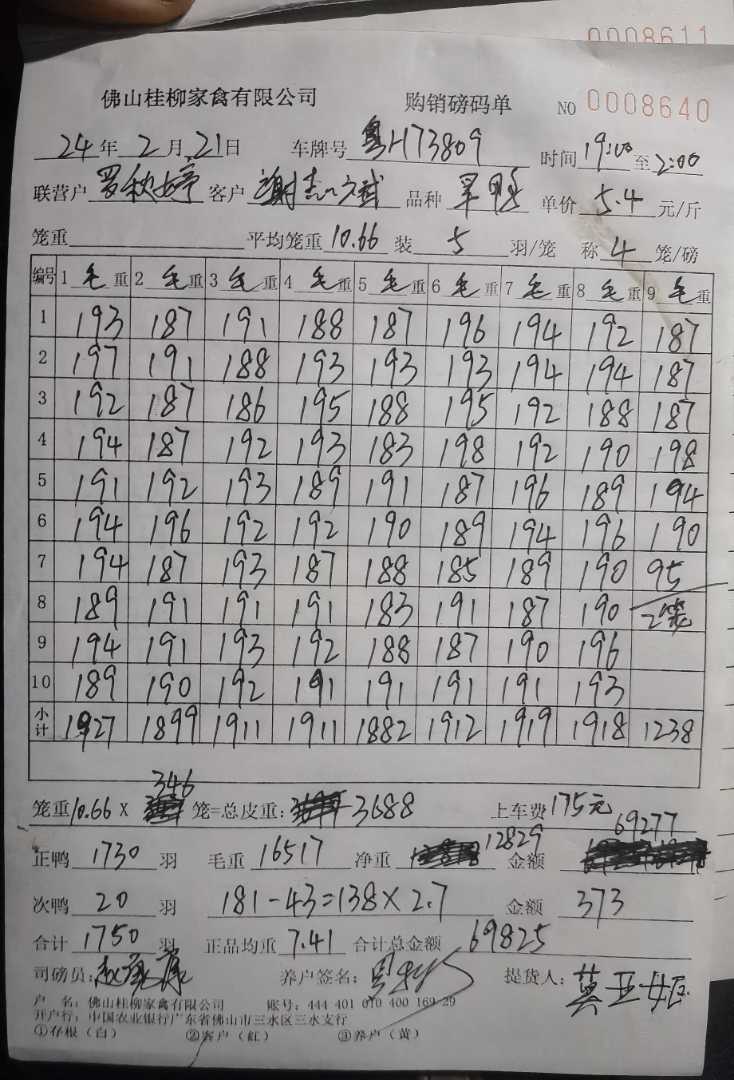 0008611
佛山桂柳家禽有限公司 购销磅码单 NO 0008640
24年2月21日 车牌号 粤H73809 时间19:00至2:00
联营户 罗秋婷 客户 谢志斌 品种 单价 5.4 元/斤
笼重 平均笼重10.66 装 5 羽/笼 称 4 笼/磅
编号 1 毛重 2 毛重 3 毛重 4 毛重 5 毛重 6 毛重 7 毛重 8 毛重 9 毛重
1 193 187 191 188 187 196 194 192 187
2 197 191 188 193 193 193 194 194 187
3 192 187 186 195 188 195 192 188 187
4 194 187 192 193 183 198 192 190 198
5 191 192 193 189 191 187 196 189 194
6 194 196 192 192 190 189 194 196 190
7 194 187 193 187 188 185 189 190 95
8 189 191 191 191 183 191 187 190 2笼
9 194 191 193 192 188 187 190 196
10 189 190 192 191 191 191 191 193
小计 1927 1899 1911 1911 1882 1912 1919 1918 1238
笼重10.66 X 346 笼=总皮重: 3688 上车费175元
正鸭 1730 羽 毛重 16517 净重 12829 金额 69277
次鸭 20 羽 181-43=138×2.7 金额 373
合计 1750 羽 正品均重 7.41 合计总金额 69825
司磅员: 养户签名: 提货人:
户 名: 佛山桂柳家禽有限公司 账号: 444 401 010 400 169 29
开户行: 中国农业银行广东省佛山市三水区三水支行
①存根（白） ②客户（红） ③养户（黄）